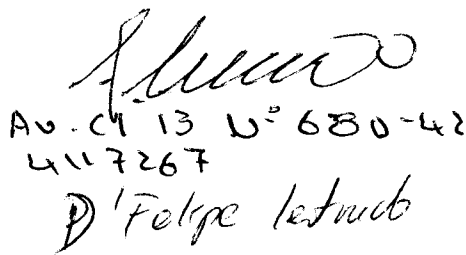 Av. Cl 13 Nº 68D-42
4117267
D'Felipe